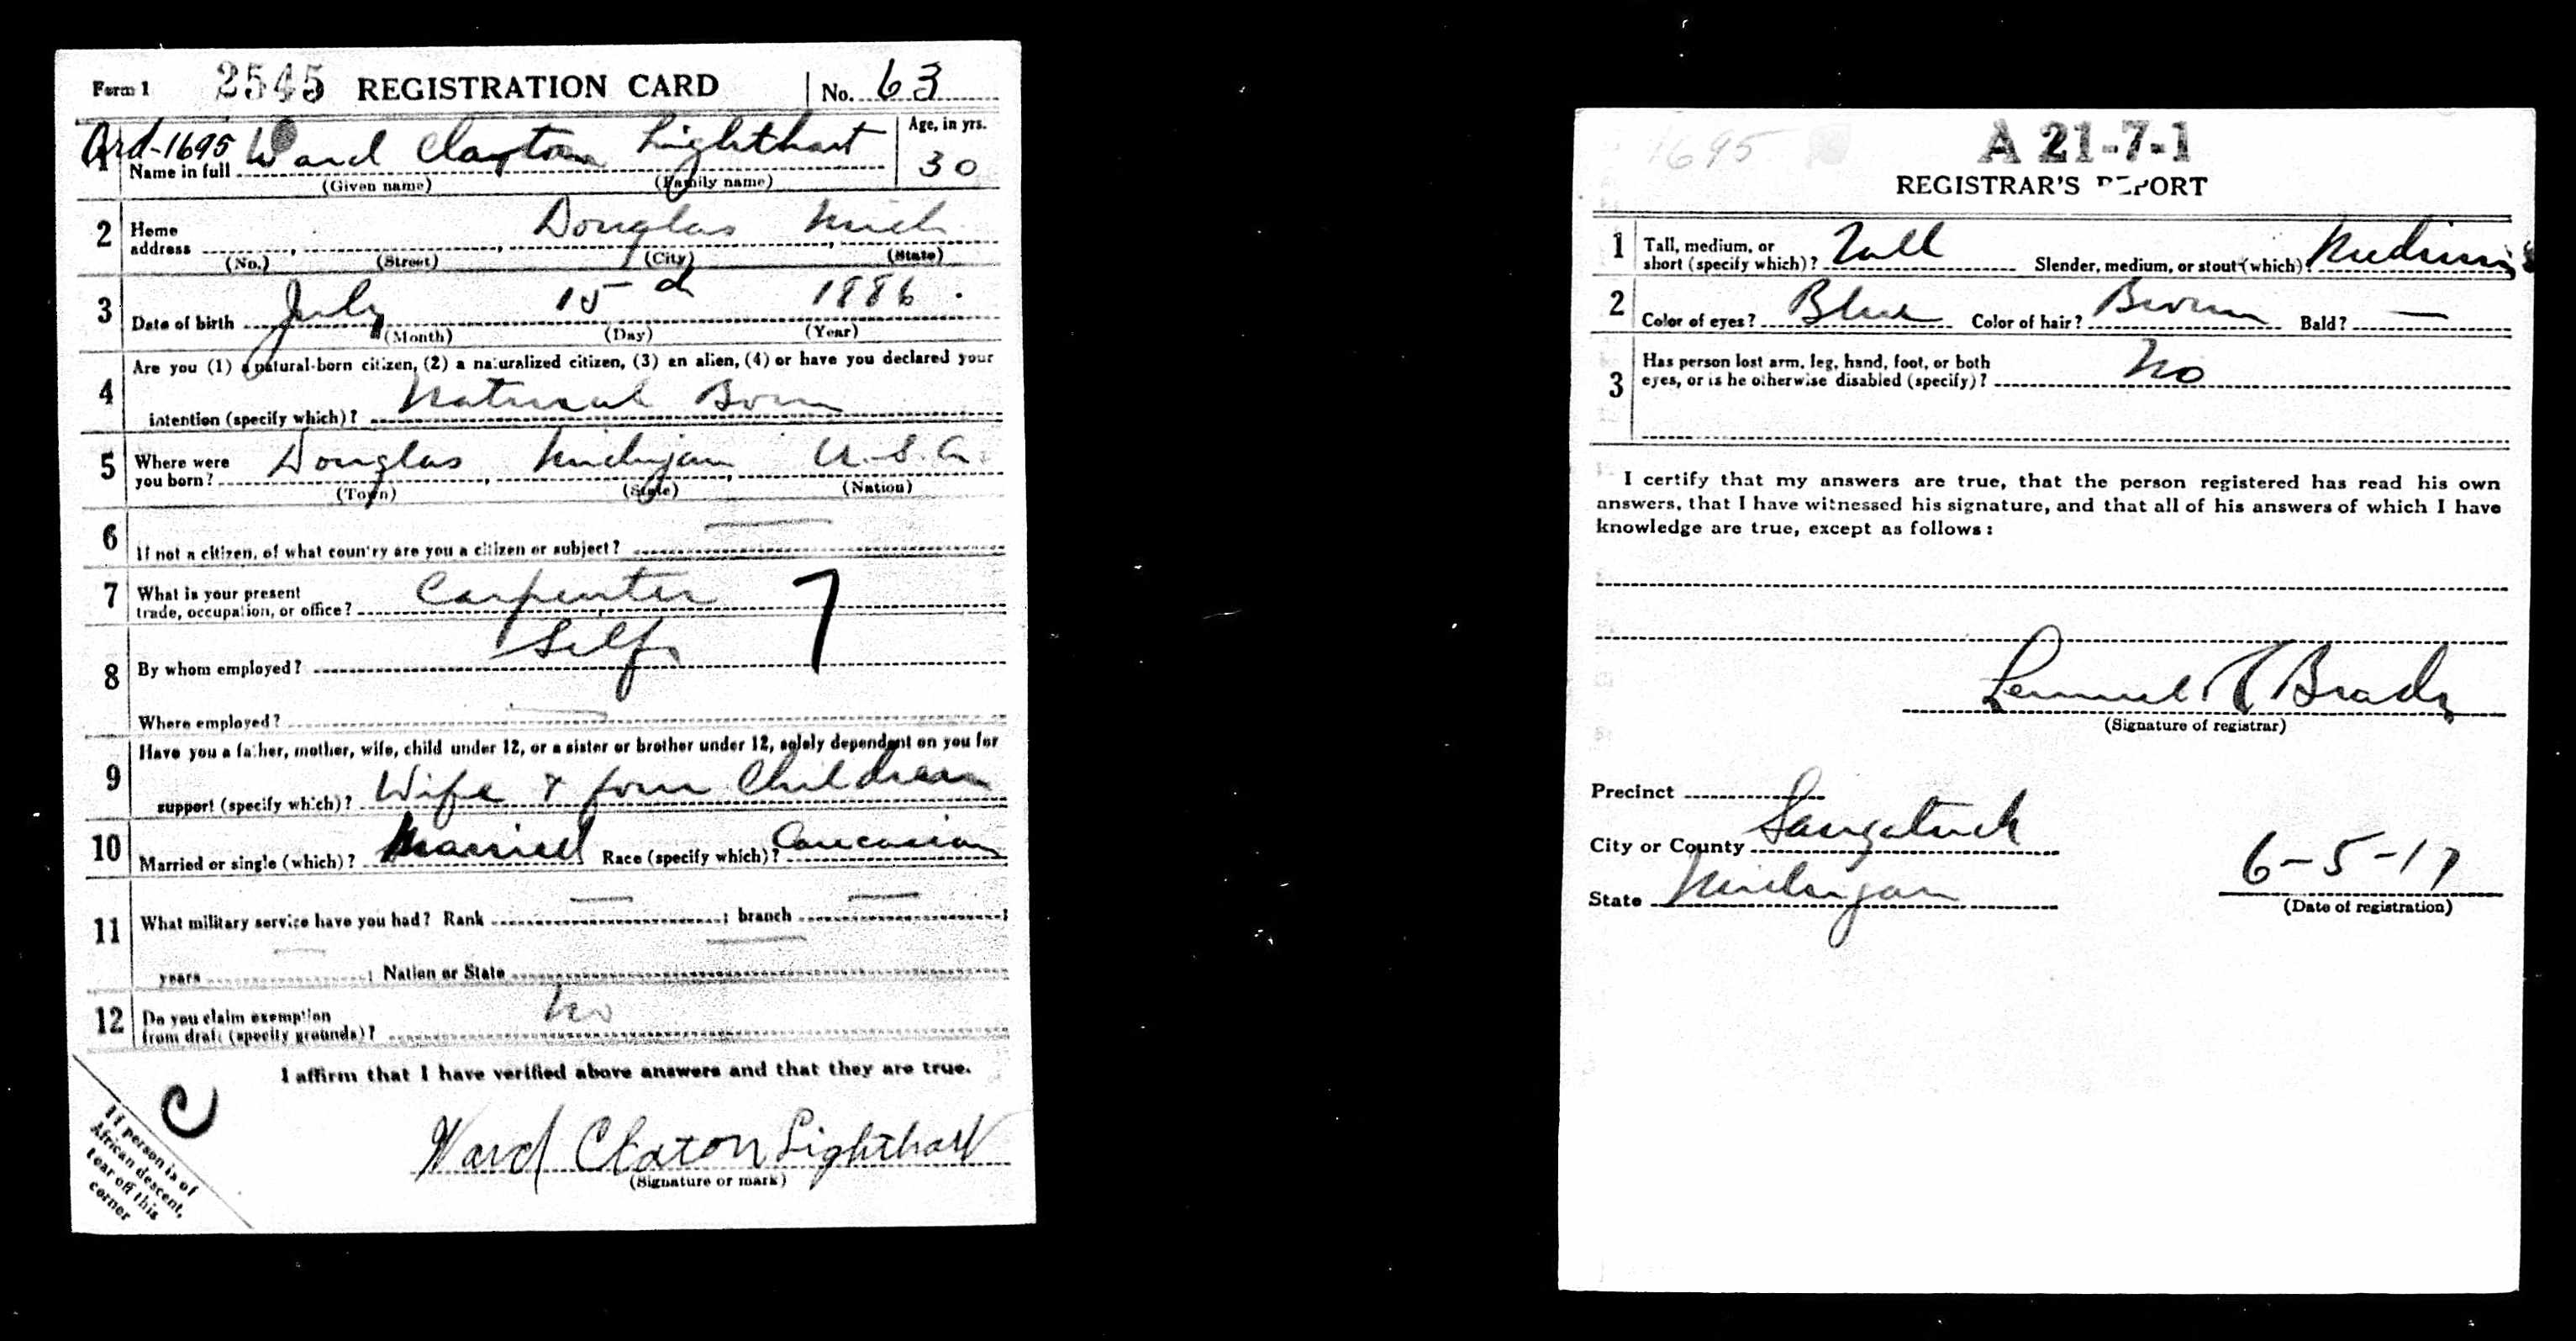 Form 1 2545 REGISTRATION CARD No. 63
Ord-1695 Ward Clayton Lighthart Age, in yrs.
1 Name in full 30
(Given name) (Family name)
2 Home address Douglas Mich
(No.) (Street) (City) (State)
3 Date of birth July 15 1886.
(Month) (Day) (Year)
4 Are you (1) a natural-born citizen, (2) a naturalized citizen, (3) an alien, (4) or have you declared your
intention (specify which)? Natural Born
5 Where were you born? Douglas Michigan U.S.A.
(Town) (State) (Nation)
6 If not a citizen, of what country are you a citizen or subject? —
7 What is your present
trade, occupation, or office? Carpenter 7
8 By whom employed? Self
Where employed? —
9 Have you a father, mother, wife, child under 12, or a sister or brother under 12, solely dependent on you for
support (specify which)? Wife & four Children
10 Married or single (which)? Married Race (specify which)? Caucasian
11 What military service have you had? Rank — ; branch — ;
years — ; Nation or State —
12 Do you claim exemption
from draft (specify grounds)? No
I affirm that I have verified above answers and that they are true.
Ward Claton Lighthart
(Signature or mark)
If person is of
African descent,
tear off this
corner
C
1695 A 21-7-1
REGISTRAR'S REPORT
1 Tall, medium, or
short (specify which)? Tall Slender, medium, or stout (which)? Medium
2 Color of eyes? Blue Color of hair? Brown Bald? —
3 Has person lost arm, leg, hand, foot, or both
eyes, or is he otherwise disabled (specify)? No
I certify that my answers are true, that the person registered has read his own
answers, that I have witnessed his signature, and that all of his answers of which I have
knowledge are true, except as follows:
Lemuel R Brady
(Signature of registrar)
Precinct
City or County Saugatuck
State Michigan 6-5-17
(Date of registration)